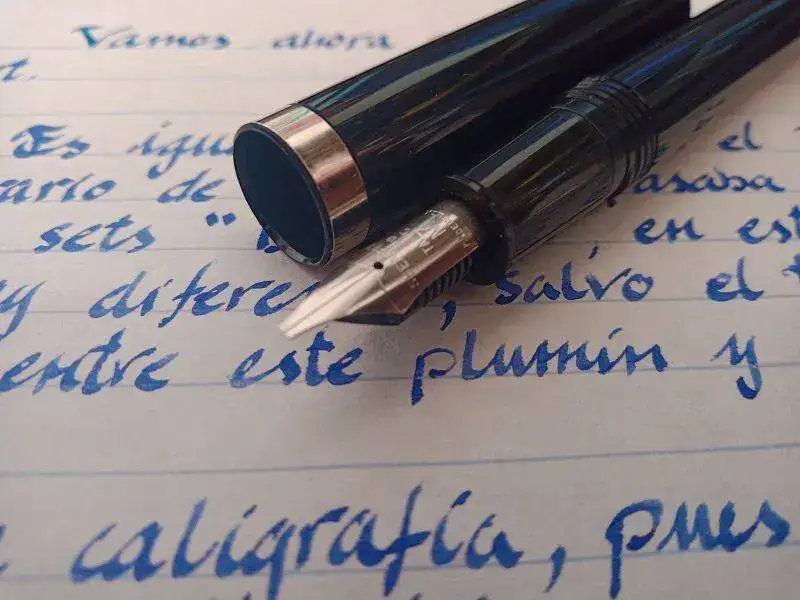 Vamos ahora
Es igu el
ario de pasaba
sets " , en est
y diferen , salvo el t
entre este plumín y
caligrafía, pues